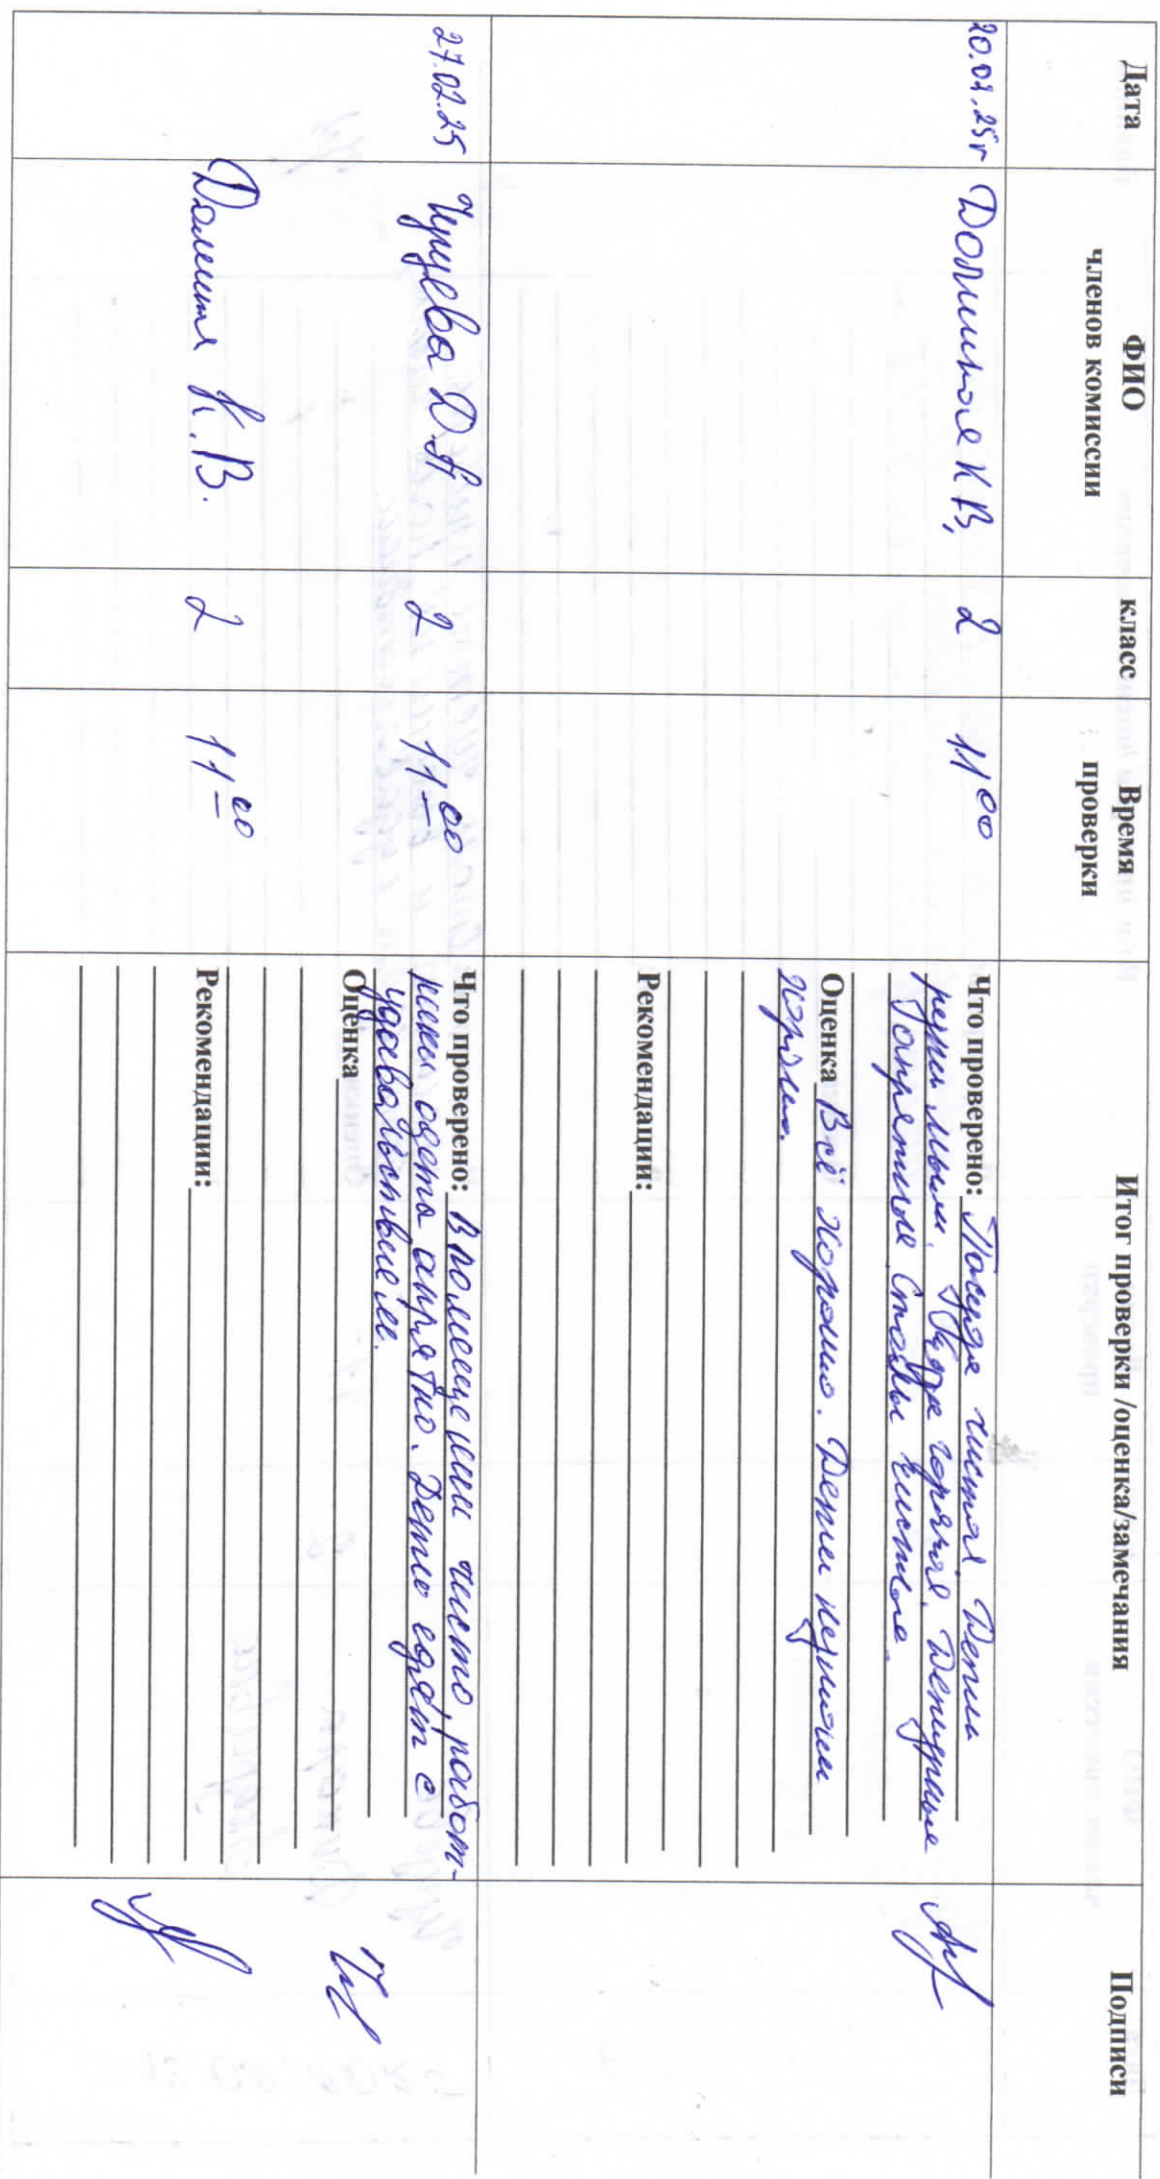 Дата
ФИО
членов комиссии
класс
Время
проверки
Итог проверки /оценка/замечания
Подписи
20.01.25г
К В,
2
11 00
Что проверено: Посуда чистая. Дети
руки мыли. Еда горячая. Дежурные
опрятные. Столы чистые.
Оценка Всё хорошо. Дети кушали
хорошо.
Рекомендации:
27.02.25
Д.А
2
11 00
К.В.
2
11 00
Что проверено: В помещении чисто, работ-
ники одеты опрятно. Дети едят с
удовольствием.
Оценка
Рекомендации: